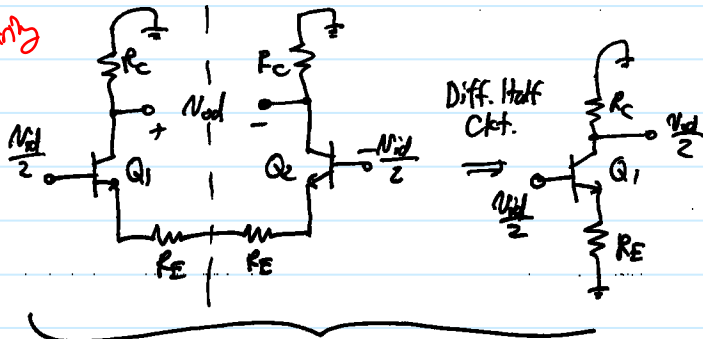 Rc
Rc
+ Vod -
Vid/2
Q1
Q2
-Vid/2
RE
RE
Diff. Half
Ckt.
⇒
Rc
Vod/2
Q1
Vid/2
RE